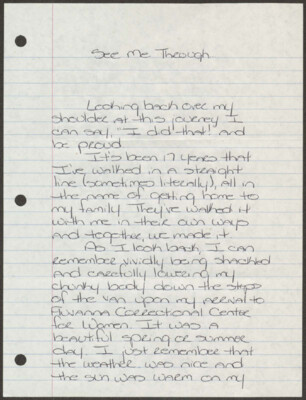 See Me Through
Looking back over my
shoulder at this journey I
can say, "I did that!" and
be proud.
It's been 17 years that
I've walked in a straight
line (sometimes literally), all in
the name of getting home to
my family. They've walked it
with me in their own ways
and together, we made it.
As I look back, I can
remember vividly being shackled
and carefully lowering my
chunky body down the steps
of the van upon my arrival to
Fluvanna Correctional Center
for Women. It was a
beautiful spring or summer
day. I just remember that
the weather was nice and
the sun was warm on my